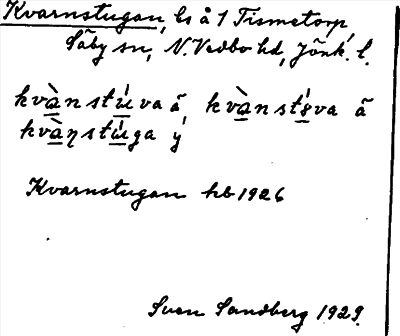 Kvarnstugan, ls å 1 Tismetorp,
Säby sn, N. Vedbo hd, Jönk. l.
kvànstú̱va ä̃, kvànstó̱va ä̃
kvàṉstú̱ga y
Kvarnstugan hb 1926
Sven Sandberg 1929.